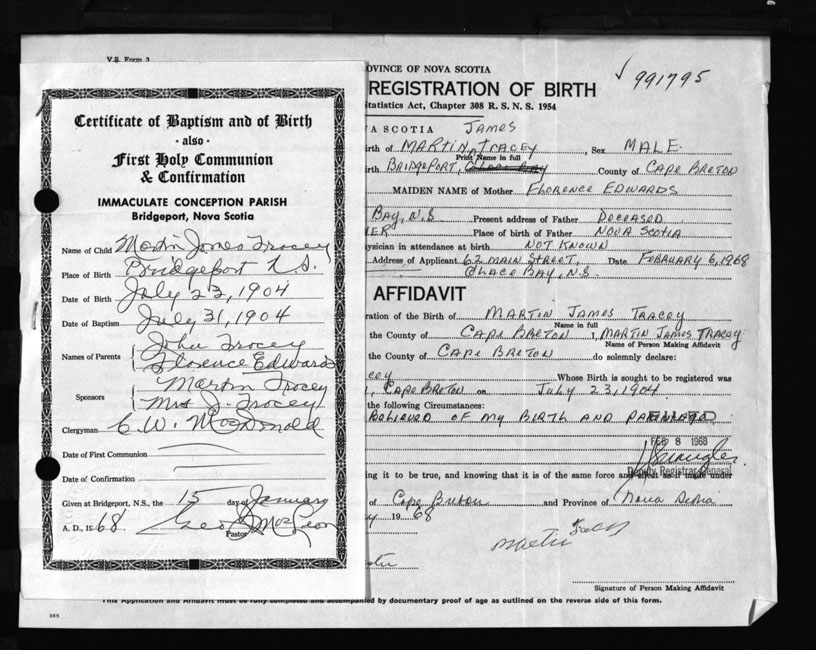 V.S. Form 3
Certificate of Baptism and of Birth
- also -
First Holy Communion
& Confirmation
IMMACULATE CONCEPTION PARISH
Bridgeport, Nova Scotia
Name of Child Martin James Tracey
Place of Birth Bridgeport N.S.
Date of Birth July 23, 1904
Date of Baptism July 31, 1904
Names of Parents John Tracey
Florence Edwards
Sponsors Martin Tracey
Mrs J. Tracey
Clergyman C. W. MacDonald
Date of First Communion
Date of Confirmation
Given at Bridgeport, N.S., the 15 day of January
A. D., 1968 Geo MacLean
Pastor
OVINCE OF NOVA SCOTIA
991795
REGISTRATION OF BIRTH
Statistics Act, Chapter 308 R. S. N. S. 1954
A SCOTIA JAMES
irth of MARTIN TRACEY, Sex MALE
Print Name in full
irth BRIDGEPORT, GLACE BAY County of CAPE BRETON
MAIDEN NAME of Mother FLORENCE EDWARDS
BAY, N.S Present address of Father DECEASED
ER Place of birth of Father NOVA SCOTIA
ysician in attendance at birth NOT KNOWN
Address of Applicant 62 MAIN STREET, Date FEBRUARY 6, 1968
GLACE BAY, N.S.
AFFIDAVIT
ration of the Birth of MARTIN JAMES TRACEY
Name in full
the County of CAPE BRETON I, MARTIN JAMES TRACEY
Name of Person Making Affidavit
the County of CAPE BRETON do solemnly declare:
cey Whose Birth is sought to be registered was
, CAPE BRETON on JULY 23, 1904
the following Circumstances:
BELIEVED OF MY BIRTH AND
FEB 8 1968
Deputy Registrar General
ing it to be true, and knowing that it is of the same force and effect as if made under
of Cape Breton and Province of Nova Scotia
y 1968
Martin
Signature of Person Making Affidavit
This Application and Affidavit must be fully completed and accompanied by documentary proof of age as outlined on the reverse side of this form.